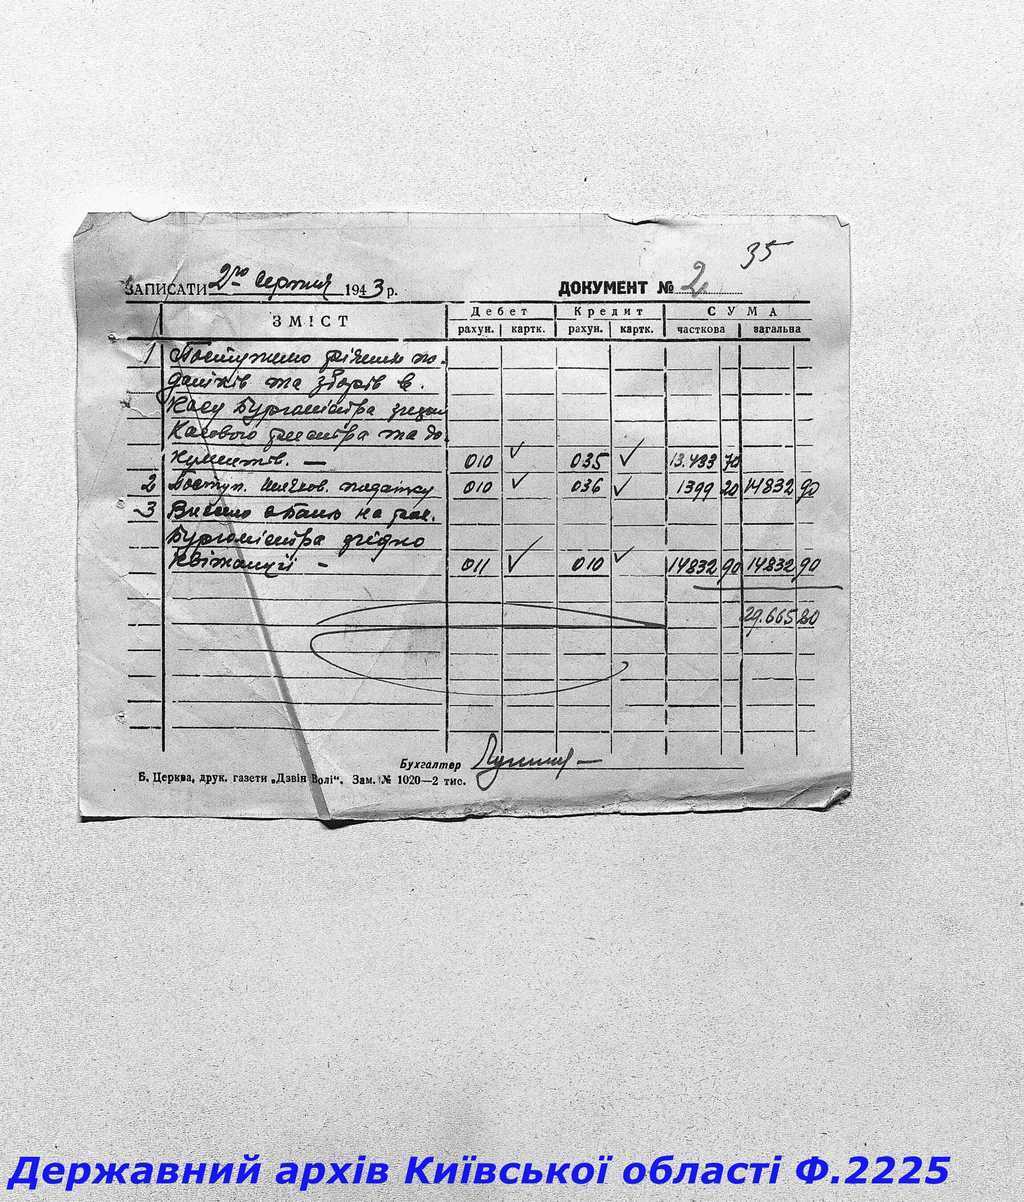 35
ЗАПИСАТИ 2го Серпня 1943 р. ДОКУМЕНТ № 2
ЗМІСТ Дебет Кредит СУМА
рахун. картк. рахун. картк. часткова загальна
1 Поступило по-
датків та зборів в
касу Бургомістра
касового та до-
кументів. — 010 ✓ 035 ✓ 13.433 70
2 Поступ. податку 010 ✓ 036 ✓ 1399 20 14832 90
3 Внесено в Банк на рах.
Бургомістра згідно
квітанції — 011 ✓ 010 ✓ 14832 90 14832 90
29.665 80
Бухгалтер
Б. Церква, друк. газети „Дзвін Волі“. Зам. № 1020—2 тис.
Державний архів Київської області Ф.2225